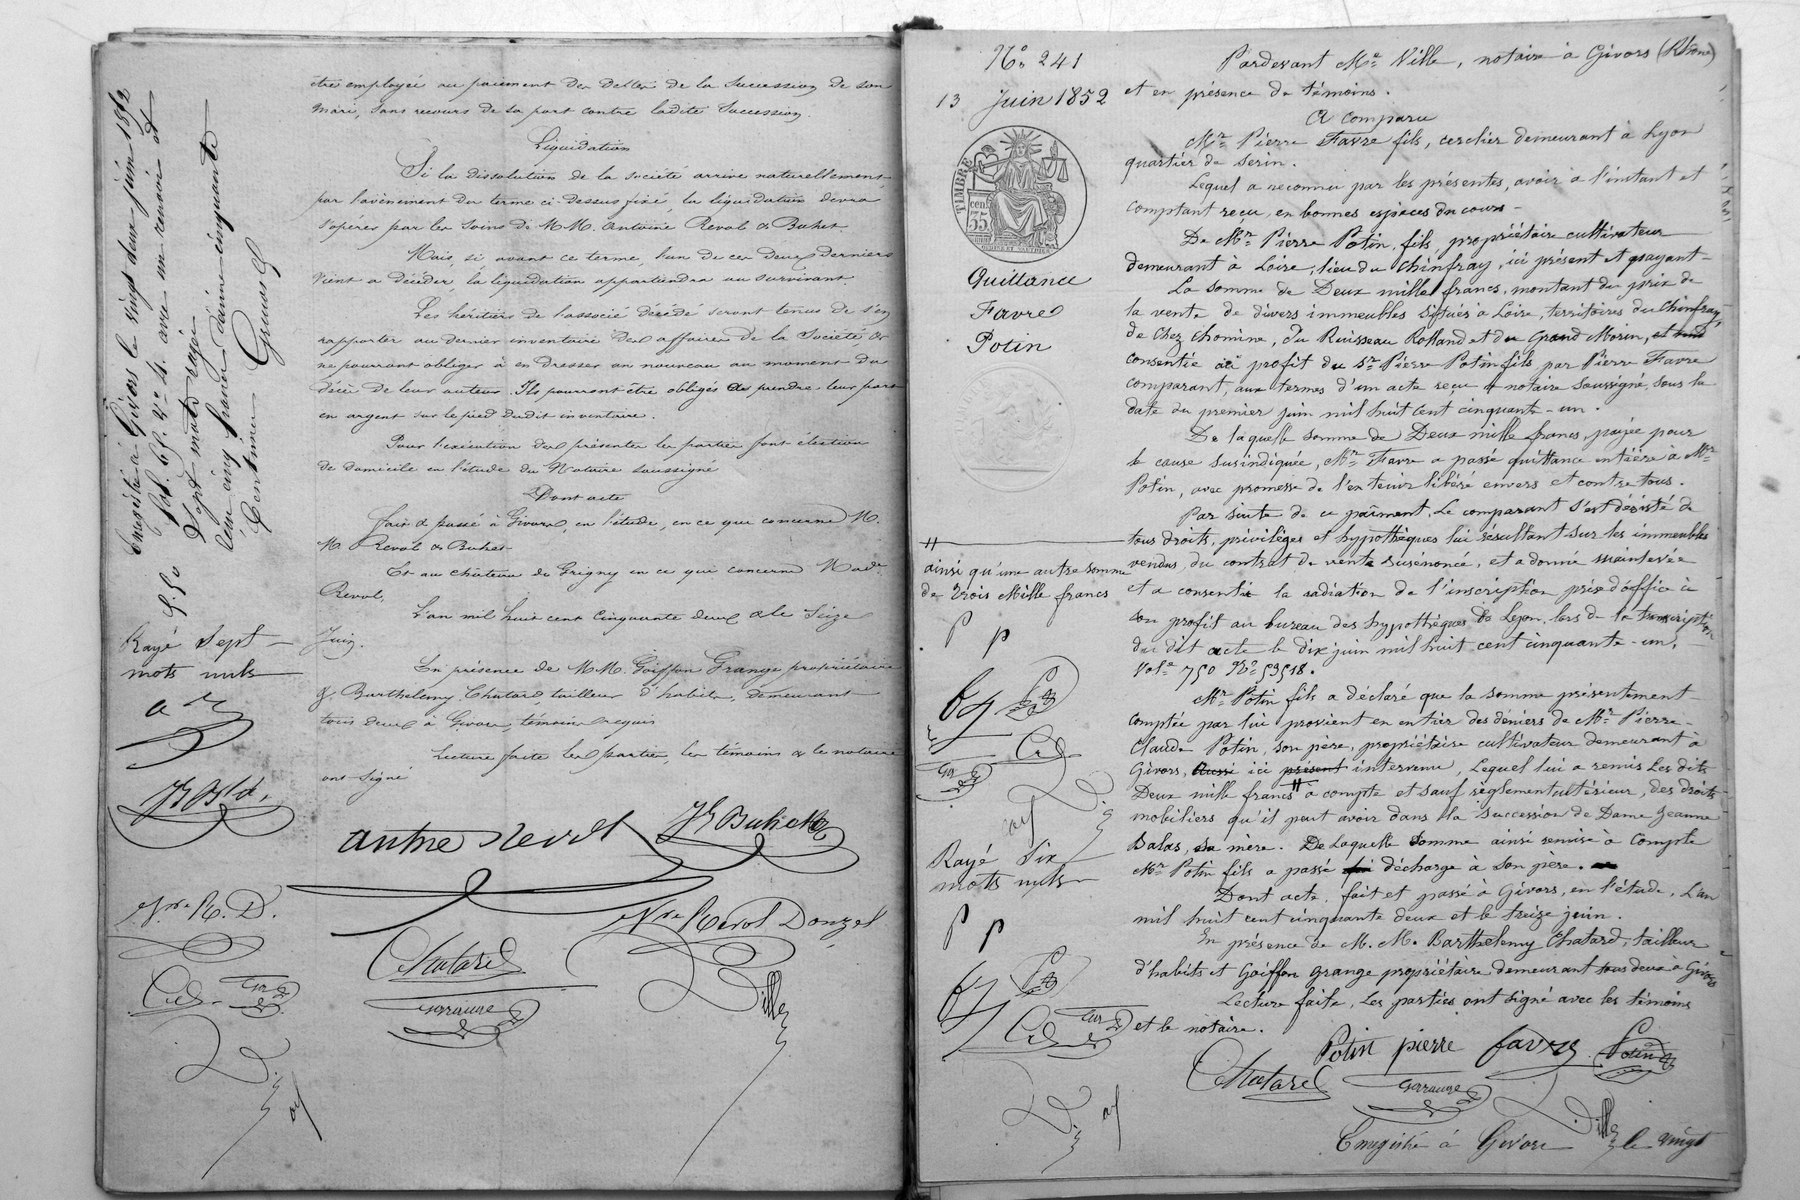 être employée au paiement des dettes de la Succession de son
mari, sans recours de sa part contre ladite Succession.
Liquidation
Si la dissolution de la société arrive naturellement
par l'évènement du terme ci-dessus fixé, la liquidation devra
s'opérer par les soins de M.M. Antoine Revol & Buhet.
Mais, si avant ce terme, l'un de ces deux derniers
vient a décéder, la liquidation appartiendra au survivant.
Les héritiers de l'associé décédé seront tenus de s'en
rapporter au dernier inventaire des affaires de la Société &
ne pourront obliger à en dresser un nouveau au moment du
décès de leur auteur. Ils pourront être obligés de prendre leur part
en argent sur le pied dudit inventaire.
Pour l'exécution des présentes les parties font élection
de domicile en l'étude du Notaire soussigné
Dont acte
fait & passé à Givors, en l'étude, en ce qui concerne M.
M. Revol & Buhet
Et au château de Grigny en ce qui concerne Made
Revol,
L'an mil huit cent cinquante deux & le Seize
Juin.
En présence de M.M. Goiffon Grange propriétaire
& Barthelemy Chatard, tailleur d'habits, demeurant
tous deux à Givors, témoins requis
Lecture faite les parties, les témoins & le notaire
ont signé
Enregistré à Givors le vingt deux juin 1852
fol. 61. Vo. c. 4. avec un renvoi et
sept mots rayés
cinq francs
Centimes
5.50
Rayé Sept
mots nuls
antne revol
Jh Buhet
Nne R. D.
Nne Revol Donzel
Chatard
Ville
No. 241
13 Juin 1852
TIMBRE
cen. 35
Quittance
Favre
Potin
ainsi qu'une autre somme
de Trois Mille francs
P p
Rayé Six
mots nuls
P p
Pardevant Me. Ville, notaire à Givors (Rhône)
et en présence de témoins.
A comparu
Mr. Pierre Favre fils, cerclier demeurant à Lyon
quartier de Serin.
Lequel a reconnu par les présentes, avoir à l'instant et
comptant reçu, en bonnes espèces du cours
De Mr. Pierre Potin, fils, propriétaire cultivateur
demeurant à Loire, lieu du Chinfray, ici présent et payant
La somme de Deux mille francs, montant du prix de
la vente de divers immeubles situés à Loire, territoires du Chinfray,
de Chez Chomine, du Ruisseau Rolland et du Grand Morin,
consentie au profit du Sr. Pierre Potin fils par Pierre Favre
comparant, aux termes d'un acte reçu notaire soussigné, sous la
date du premier juin mil huit cent cinquante-un.
De laquelle somme de Deux mille francs, payée pour
la cause susindiquée, Mr. Favre a passé quittance entière à Mr.
Potin, avec promesse de l'en tenir libéré envers et contre tous.
Par suite de ce paiment, Le comparant s'est désisté de
tous droits, privilèges et hypothèques lui résultant sur les immeubles
vendus, du contrat de vente susénoncé, et a donné mainlevée
et a consenti la radiation de l'inscription prise d'office à
son profit au bureau des hypothèques de Lyon, lors de la transcription
du dit acte le dix juin mil huit cent cinquante-un,
Vole. 750 No. 53518.
Mr. Potin fils a déclaré que la somme présentement
comptée par lui provient en entier des deniers de Mr. Pierre
Claude Potin, son père, propriétaire cultivateur demeurant à
Givors, Aussi ici présent intervenu, Lequel lui a remis Les dits
Deux mille francs à compte et sauf règlement ultérieur, des droits
mobiliers qu'il peut avoir dans la succession de Dame Jeanne
Balas, sa mère. De Laquelle Somme ainsi remise à Compte
Mr. Potin fils a passé décharge à son père.
Dont acte, fait et passé à Givors, en l'étude, L'an
mil huit cent cinquante deux et le treize juin.
En présence de M. M. Barthelemy Chatard, tailleur
d'habits et Goiffon Grange propriétaire demeurant tous deux à Givors
Lecture faite, Les parties ont signé avec les témoins
et le notaire.
Potin pierre favre Potin
Chatard
Ville
Enregistré à Givors le vingt